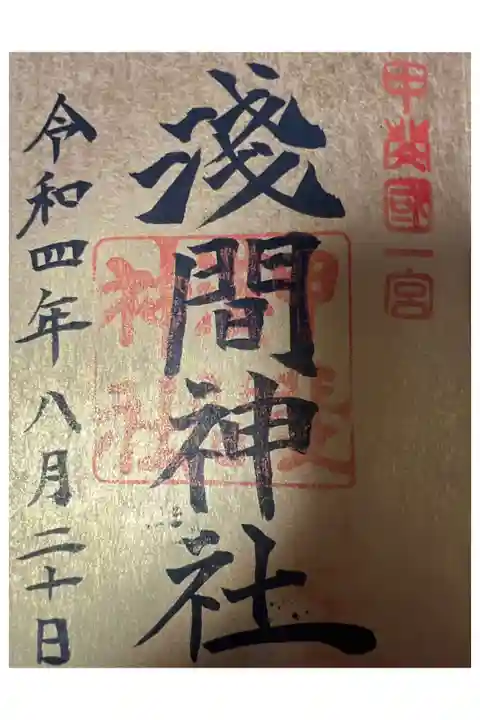 甲斐国一宮
淺間神社
令和四年八月二十日